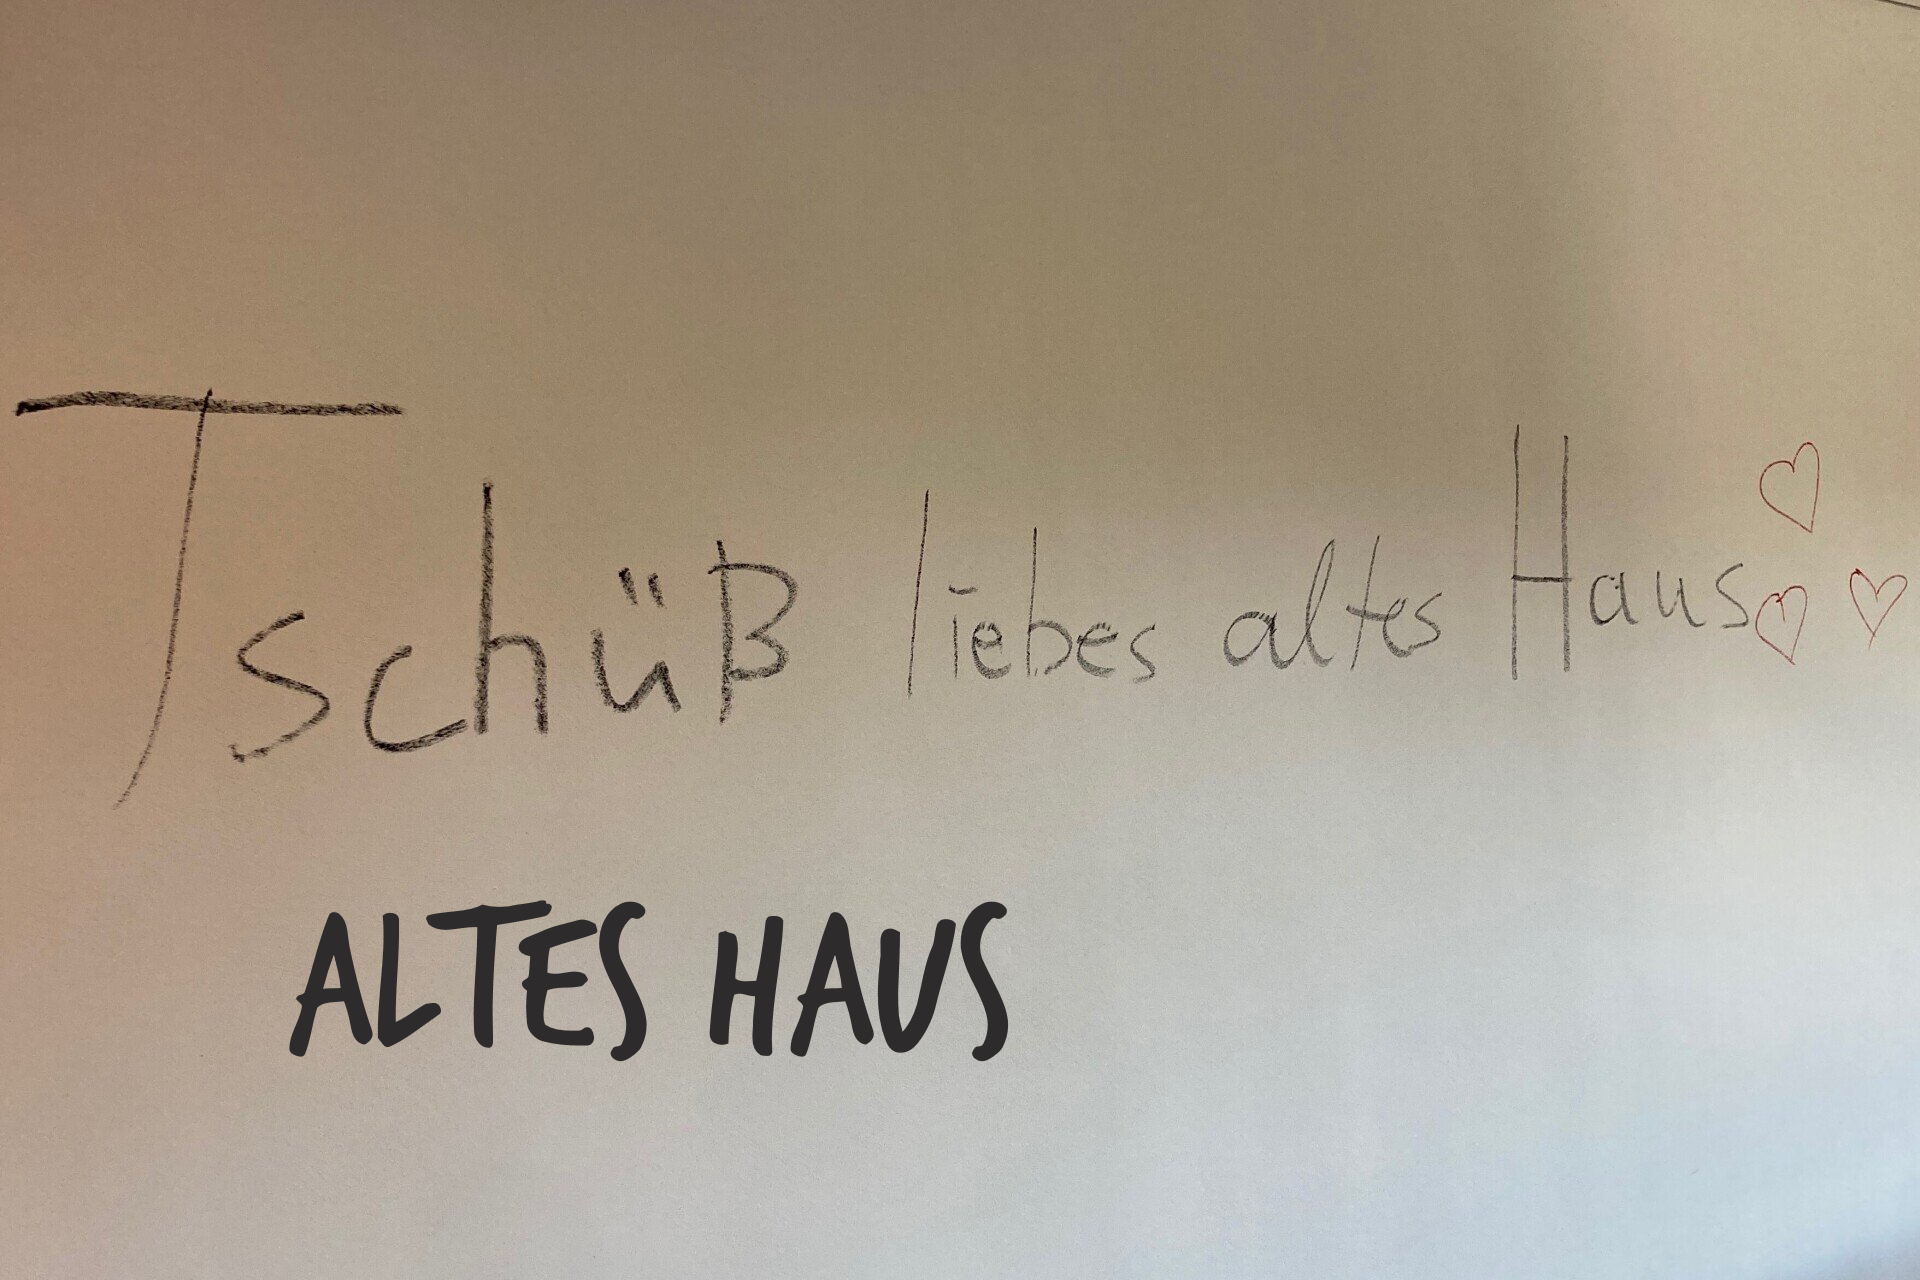 Tschüß liebes altes Haus
ALTES HAUS